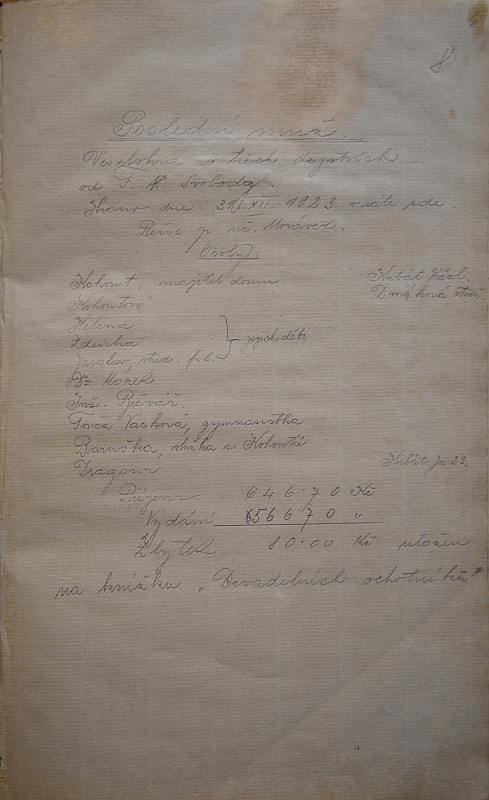 8.
Poslední muž.
Veselohra o třech dějstvích
od F. X. Svobody.
Hráno dne 31/XII. 1923 v sále zde.
Režie p. uč. Morávek.
Osoby:
Kohout, majitel domu Kubát Václ.
Kohoutová Dvořáková
Helena
Zdenka
Jaroslav, stud. fil. } jejich děti
Dr Mořek
Inž. Bečvář
Tonča Vacková, gymnasistka
Baruška, služka u Kohoutů
Dragoun Kubát Jos. 23.
Příjem 646·70 Kč
Vydání 566·70 "
Zbytek 80·00 Kč uložen
na knížku „Divadelních ochotníků"